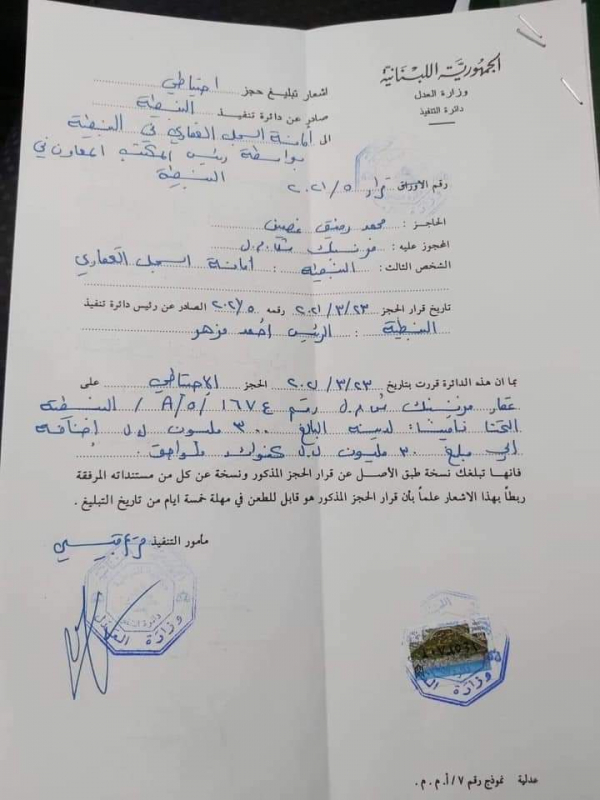 الجمهوريّة اللبنانيّة
وزارة العدل
دائرة التنفيذ
اشعار تبليغ حجز احتياطي
صادر عن دائرة تنفيذ النبطية
الى أمانة السجل العقاري في النبطية
بواسطة رئيس المكتب المعاون في
النبطية
رقم الاوراق قرار ٥/٢٠٢١
الحاجز : محمد رفيق غصين
المحجوز عليه : فرنسبنك ش.م.ل
الشخص الثالث : أمانة السجل العقاري النبطية
تاريخ قرار الحجز ٢٠٢١/٣/٢٣ رقمه ٢٠٢١/٥ الصادر عن رئيس دائرة تنفيذ
النبطية : الرئيس أحمد مزهر
بما ان هذه الدائرة قررت بتاريخ ٢٠٢١/٣/٢٣ الحجز الإحتياطي على
عقار فرنسبنك ش.م.ل رقم ١٦٧٤/٥/A/ النبطية
التحتا تأميناً لدينه البالغ ٣٠٠ مليون ل.ل إضافة
إلى مبلغ ٣٠ مليون ل.ل كفوائد ولواحق.
فانها تبلغك نسخة طبق الأصل عن قرار الحجز المذكور ونسخة عن كل من مستنداته المرفقة
ربطاً بهذا الاشعار علماً بأن قرار الحجز المذكور هو قابل للطعن في مهلة خمسة ايام من تاريخ التبليغ .
مأمور التنفيذ
دائرة التنفيذ
وزارة العدل
عدلية نموذج رقم ٧/أ.م.م.